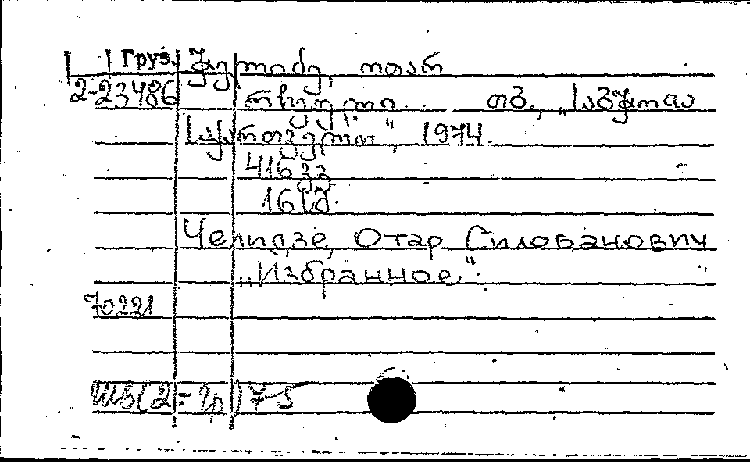 Груз. ჭელიძე, ოთარ
2-23486 რჩეული. თბ., „საბჭოთა
საქართველო", 1974.
416 გვ.
16 სმ.
Челидзе, Отар Силованович
„Избранное".
70221
Ш6(2=Гр)75